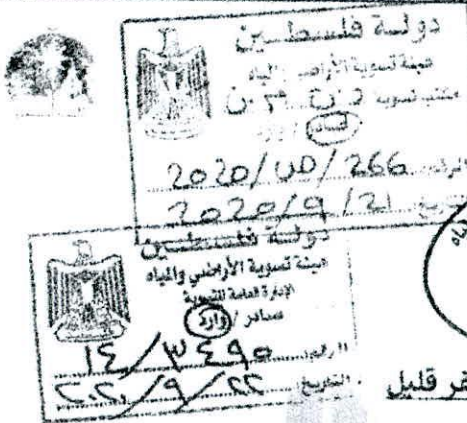 دولة فلسطين
هيئة تسوية الأراضي والمياه
مكتب تسوية
صادر / وارد
الرقم 266/ص/2020
التاريخ 21/9/2020
دولة فلسطين
هيئة تسوية الأراضي والمياه
الإدارة العامة للتسوية
صادر / وارد
الرقم ١٤/٣٤٩٥
التاريخ ٢٢/٩/٢٠٢٠
فر قليل